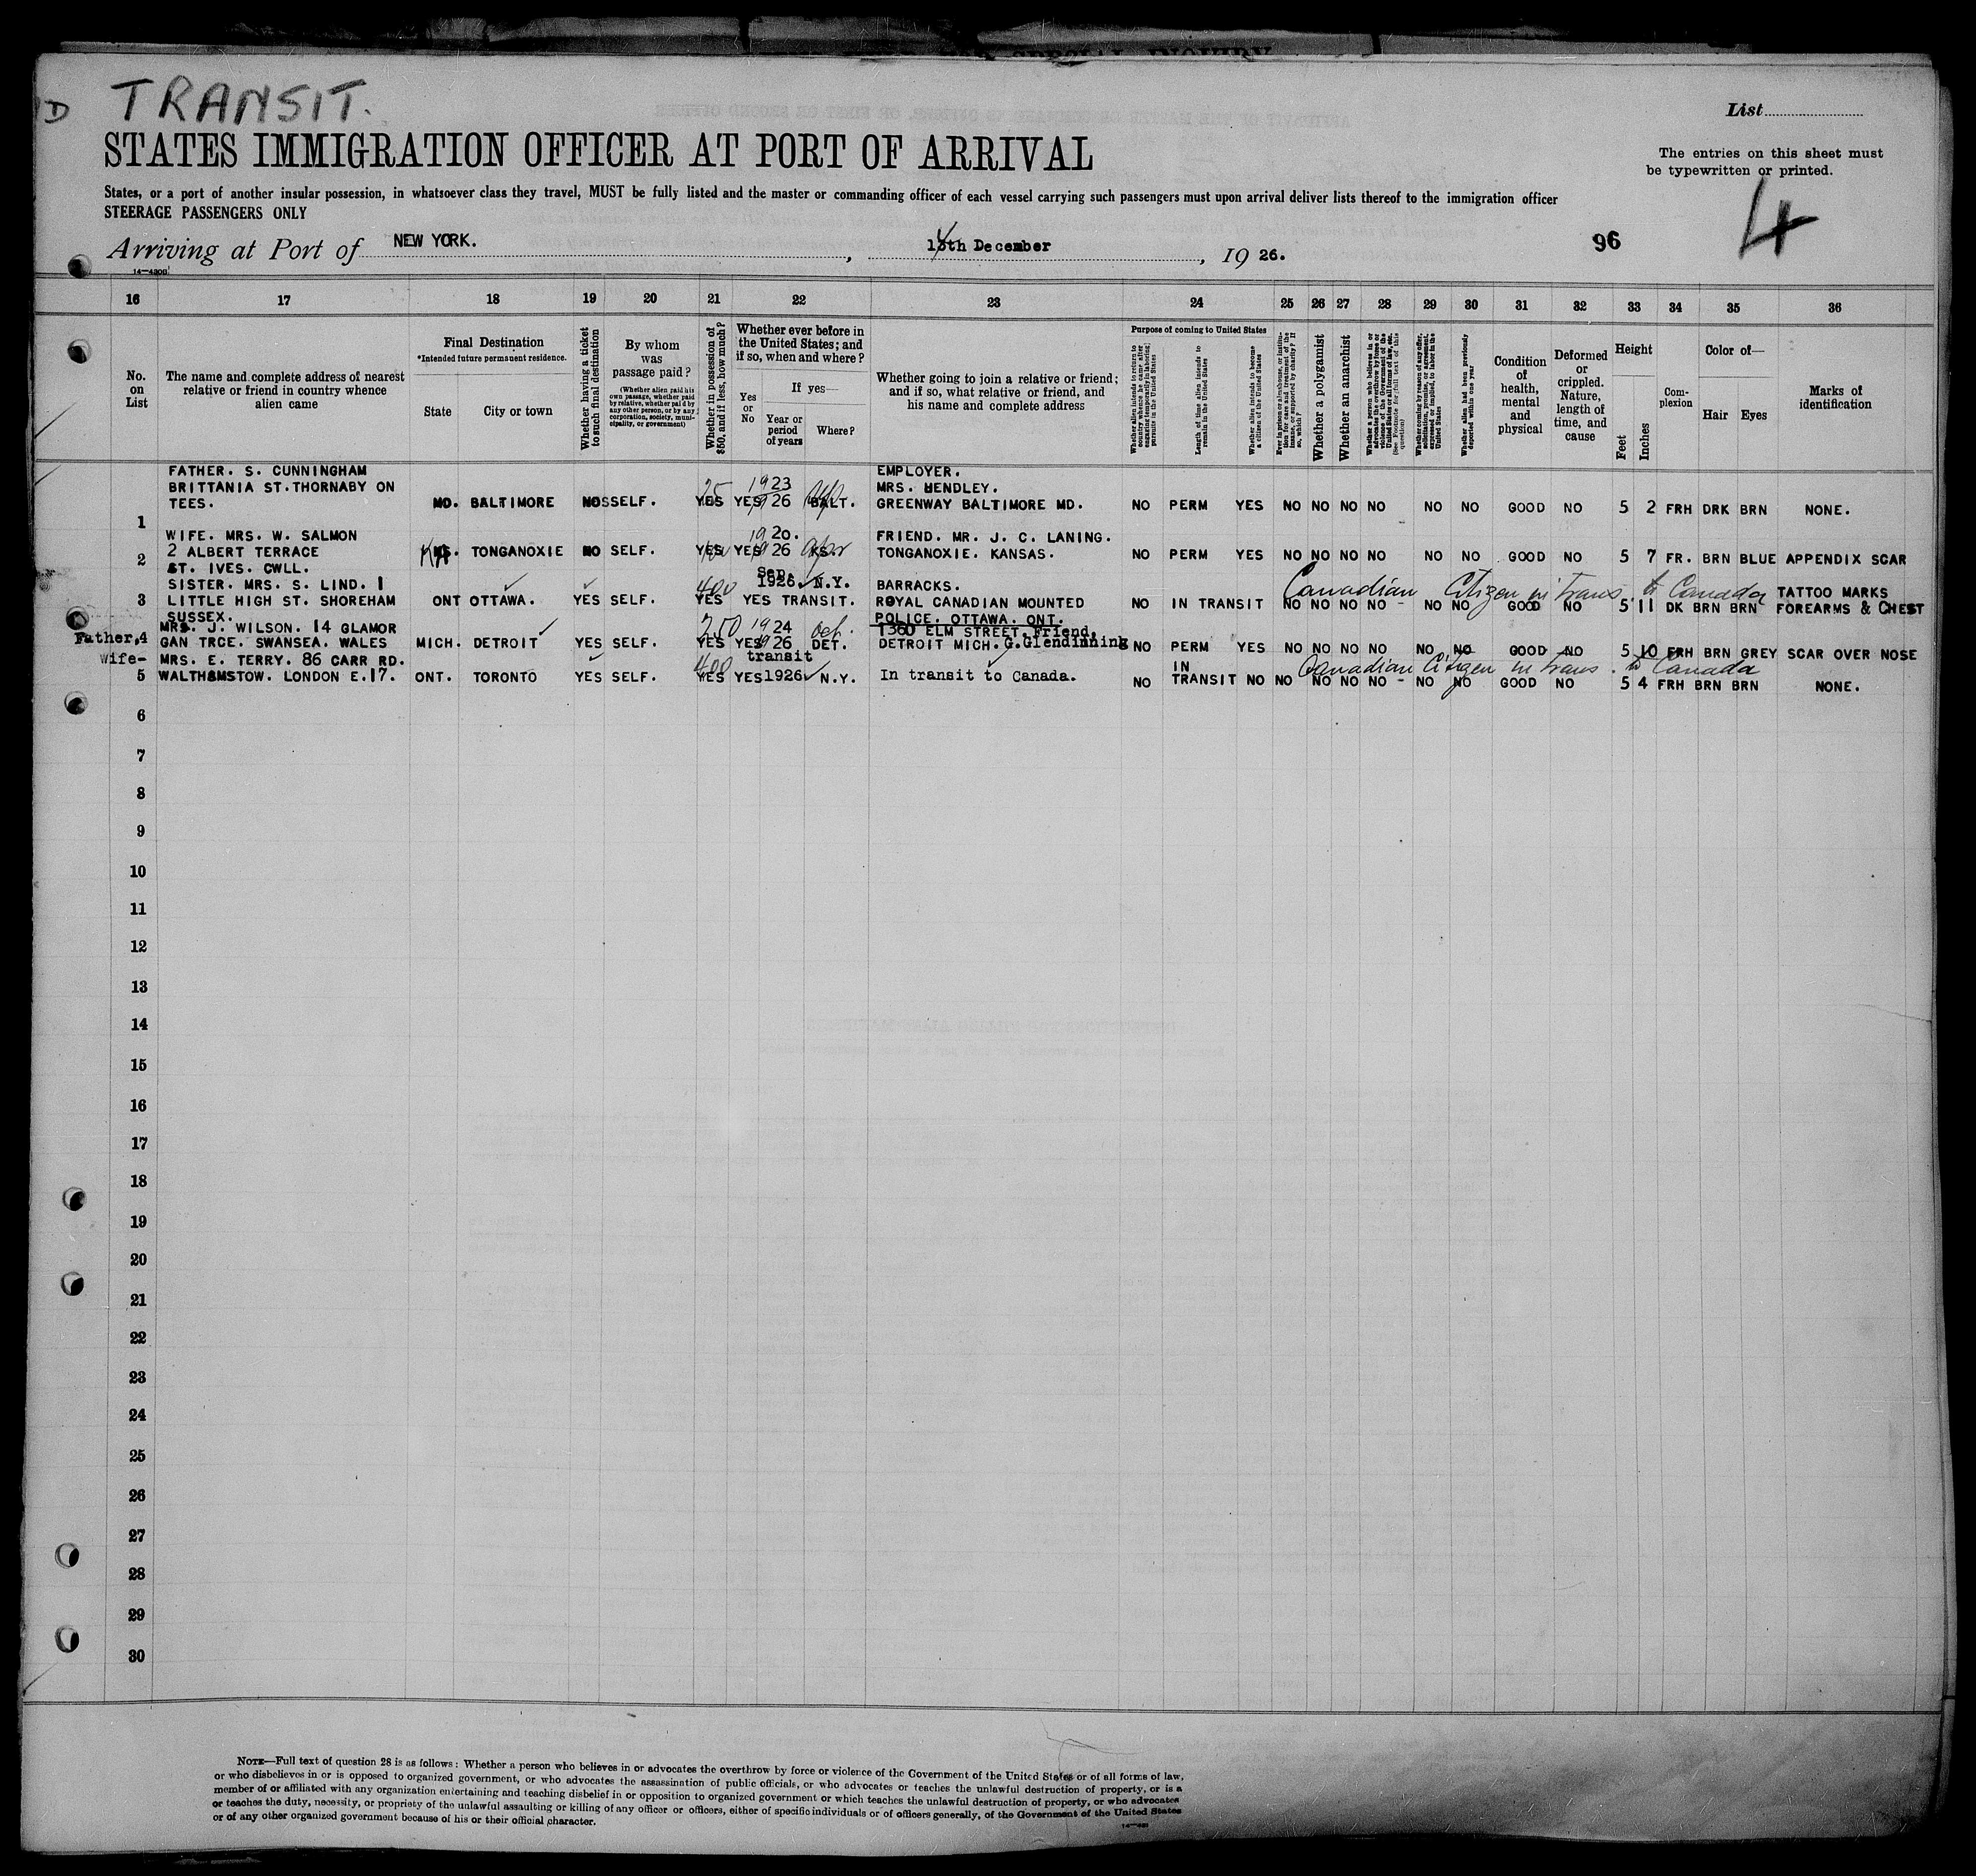 TRANSIT.
List
STATES IMMIGRATION OFFICER AT PORT OF ARRIVAL
The entries on this sheet must
be typewritten or printed.
States, or a port of another insular possession, in whatsoever class they travel, MUST be fully listed and the master or commanding officer of each vessel carrying such passengers must upon arrival deliver lists thereof to the immigration officer
STEERAGE PASSENGERS ONLY
4
Arriving at Port of NEW YORK. , th December , 19 26. 96
16 17 18 19 20 21 22 23 24 25 26 27 28 29 30 31 32 33 34 35 36
No. on List
The name and complete address of nearest relative or friend in country whence alien came
Final Destination
*Intended future permanent residence.
State City or town
Whether having a ticket to such final destination
By whom was passage paid?
(Whether alien paid his own passage, whether paid by relative, whether paid by any other person, or by any corporation, society, municipality, or government)
Whether in possession of $50, and if less, how much?
Whether ever before in the United States; and if so, when and where?
Yes or No
If yes—
Year or period of years
Where?
Whether going to join a relative or friend; and if so, what relative or friend, and his name and complete address
Purpose of coming to United States
Length of time alien intends to remain in the United States
Whether alien intends to become a citizen of the United States
Whether a polygamist
Whether an anarchist
Whether alien had been previously deported within one year
Condition of health, mental and physical
Deformed or crippled. Nature, length of time, and cause
Height
Feet Inches
Complexion
Color of—
Hair Eyes
Marks of identification
FATHER. S. CUNNINGHAM
BRITTANIA ST.THORNABY ON
TEES.
1 MD. BALTIMORE NO SELF. YES YES 1923 1926 BALT. EMPLOYER.
MRS. HENDLEY.
GREENWAY BALTIMORE MD. NO PERM YES NO NO NO NO NO NO GOOD NO 5 2 FRH DRK BRN NONE.
WIFE. MRS. W. SALMON
2 ALBERT TERRACE
ST. IVES. CWLL.
2 TONGANOXIE NO SELF. YES YES 1920. 1926 KS. FRIEND. MR. J. C. LANING.
TONGANOXIE. KANSAS. NO PERM YES NO NO NO NO NO NO GOOD NO 5 7 FR. BRN BLUE APPENDIX SCAR
SISTER. MRS. S. LIND. 1
LITTLE HIGH ST. SHOREHAM
SUSSEX.
3 ONT OTTAWA. YES SELF. 400 YES YES Sep. 1926. N.Y. TRANSIT. BARRACKS.
ROYAL CANADIAN MOUNTED
POLICE. OTTAWA. ONT. NO IN TRANSIT NO NO NO NO - NO NO GOOD NO 5 11 DK BRN BRN TATTOO MARKS
FOREARMS & CHEST
Canadian Citizen in trans. to Canada
Father, 4 MRS. J. WILSON. 14 GLAMOR
GAN TRCE. SWANSEA. WALES MICH. DETROIT YES SELF. 250 YES YES 1924 1926 Oct. DET. 1360 ELM STREET. Friend,
DETROIT MICH. G.Glendinning NO PERM YES NO NO NO NO NO NO GOOD NO 5 10 FRH BRN GREY SCAR OVER NOSE
Wife- MRS. E. TERRY. 86 CARR RD.
5 WALTHAMSTOW. LONDON E.17. ONT. TORONTO YES SELF. 400 YES YES transit 1926 N.Y. In transit to Canada. NO IN TRANSIT NO NO NO NO NO - NO NO GOOD NO 5 4 FRH BRN BRN NONE.
Canadian Citizen in trans. to Canada
6
7
8
9
10
11
12
13
14
15
16
17
18
19
20
21
22
23
24
25
26
27
28
29
30
NOTE—Full text of question 28 is as follows: Whether a person who believes in or advocates the overthrow by force or violence of the Government of the United States or of all forms of law,
or who disbelieves in or is opposed to organized government, or who advocates the assassination of public officials, or who advocates or teaches the unlawful destruction of property, or is a
member of or affiliated with any organization entertaining and teaching disbelief in or opposition to organized government or which teaches the unlawful destruction of property, or who advocates
or teaches the duty, necessity, or propriety of the unlawful assaulting or killing of any officer or officers, either of specific individuals or of officers generally, of the Government of the United States
or of any other organized government because of his or their official character.